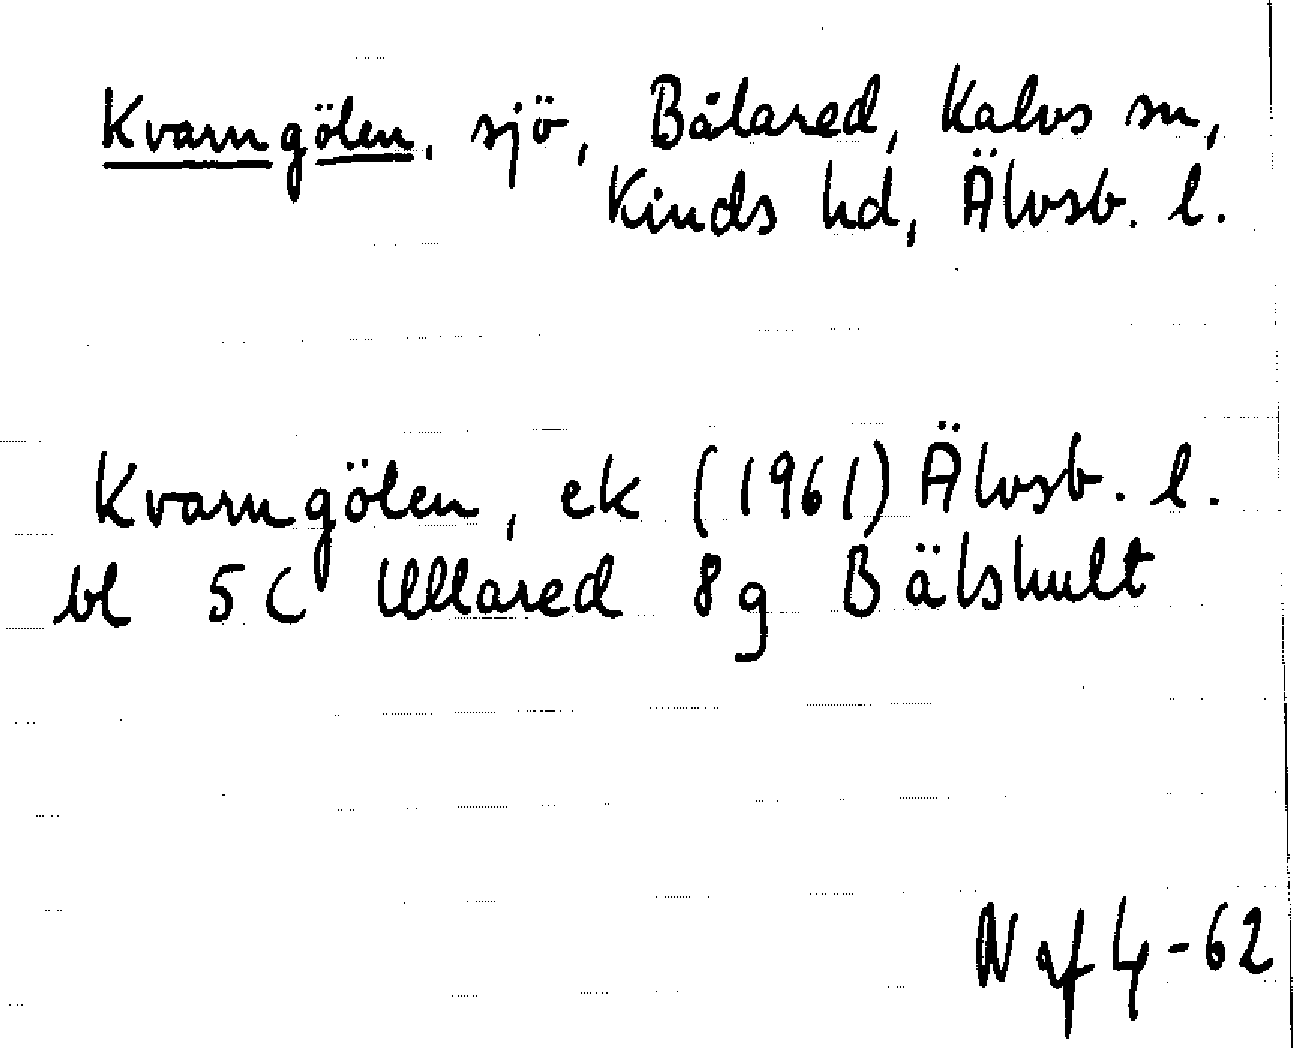 Kvarngölen, sjö, Bålared, Kalvs sn,
Kinds hd, Älvsb. l.
Kvarngölen, ek (1961) Älvsb. l.
bl 5C Ullared 8g Bälshult
N af 4-62